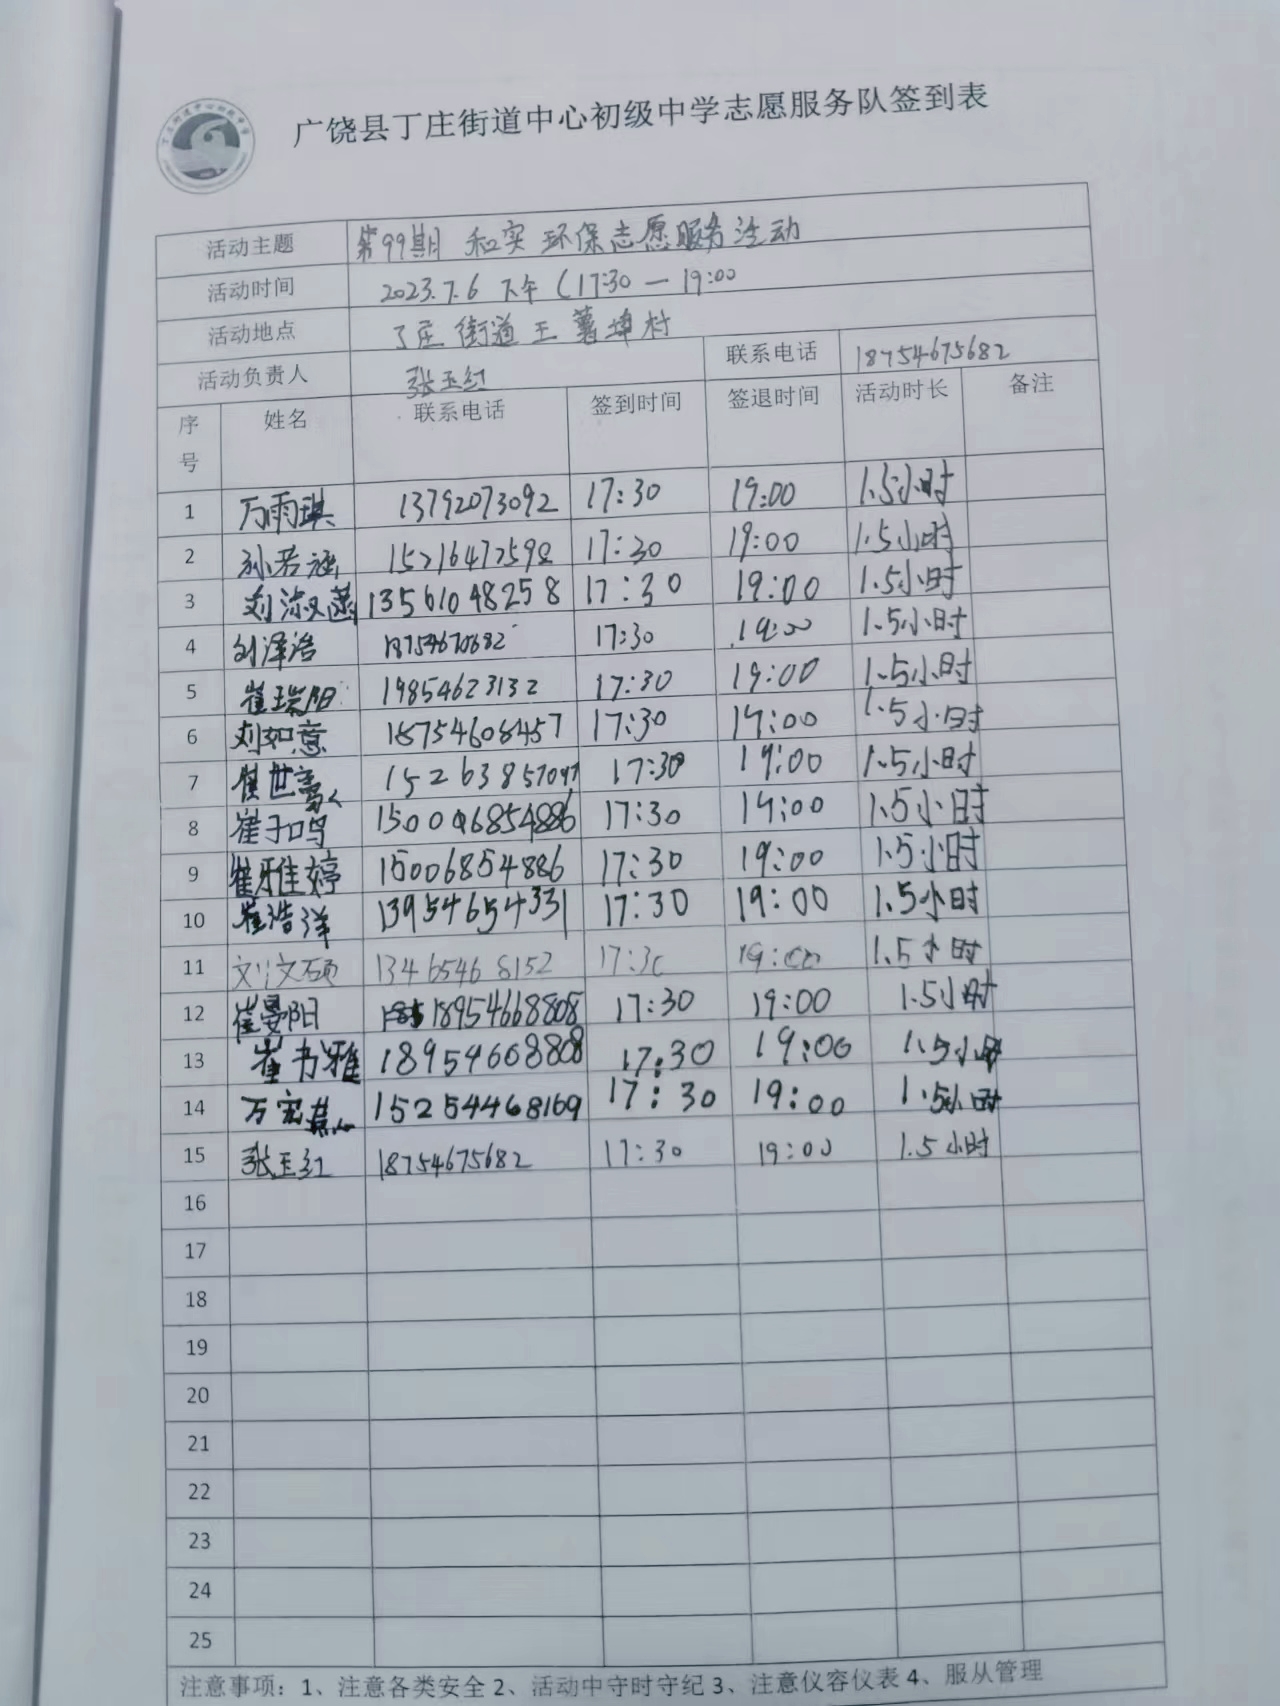 广饶县丁庄街道中心初级中学志愿服务队签到表
活动主题 第99期 和实环保志愿服务活动
活动时间 2023.7.6 下午(17:30—19:00
活动地点 丁庄街道王薯埠村
活动负责人 张玉红 联系电话 18754675682
序号 姓名 联系电话 签到时间 签退时间 活动时长 备注
1 万雨琪 13792073092 17:30 19:00 1.5小时
2 孙若涵 15216472598 17:30 19:00 1.5小时
3 刘淑菡 13561048258 17:30 19:00 1.5小时
4 刘泽浩 17:30 19:00 1.5小时
5 崔瑞阳 19854623132 17:30 19:00 1.5小时
6 刘如意 18754608457 17:30 19:00 1.5小时
7 崔世豪 17:30 19:00 1.5小时
8 崔子鸣 17:30 19:00 1.5小时
9 崔雅婷 15006854886 17:30 19:00 1.5小时
10 崔浩洋 13954654331 17:30 19:00 1.5小时
11 刘文硕 13465468152 17:30 19:00 1.5小时
12 崔曼阳 18954668808 17:30 19:00 1.5小时
13 崔书雅 18954668808 17:30 19:00 1.5小时
14 万宏 15254468169 17:30 19:00 1.5小时
15 张玉红 18754675682 17:30 19:00 1.5小时
16
17
18
19
20
21
22
23
24
25
注意事项：1、注意各类安全 2、活动中守时守纪 3、注意仪容仪表 4、服从管理